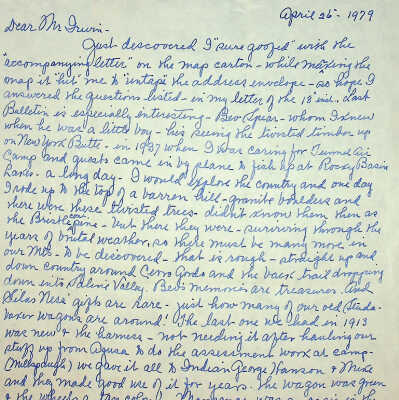 April 26 - 1979
Dear Mr Irwin -
Just descovered I "sure goofed" with the
"accompanying letter" on the map carton - while making the
map it "hit" me to "untape the address envelope - so hope I
answered the questions listed - in my letter of the 18" inst. Last
Bulletin is especially interesting - Bev Spear - whom I knew
when he was a little boy - his seeing the twisted timber up
on New York Butte - in 1937 when I was caring for Tunnel Air
Camp and guests came in by plane to fish up at Rocky Basin
Lakes - a long day - I would explore the country and one day
I rode up to the top of a barren hill - granite boulders and
there were these twisted trees - didn't know them then as
the Bristlecone pine - but there they were - surviving through the
years of brutal weather, so there must be many more in
our Mts - to be descovered - that is rough - straight up and
down country around Cerro Gordo and the back trail dropping
down into Saline Valley. Bev's memories are treasures. And
Philas Ness' gifts are rare - just how many of our old Studa-
baker wagons are around! The last one we had in 1913
was new & the harness - not needing it after hauling our
stuff up from Azusa to do the assessment work at camp -
(Millspaugh) we gave it all to Indian George Hanson & Mike
and they made good use of it for years. The wagon was green
& the wheels